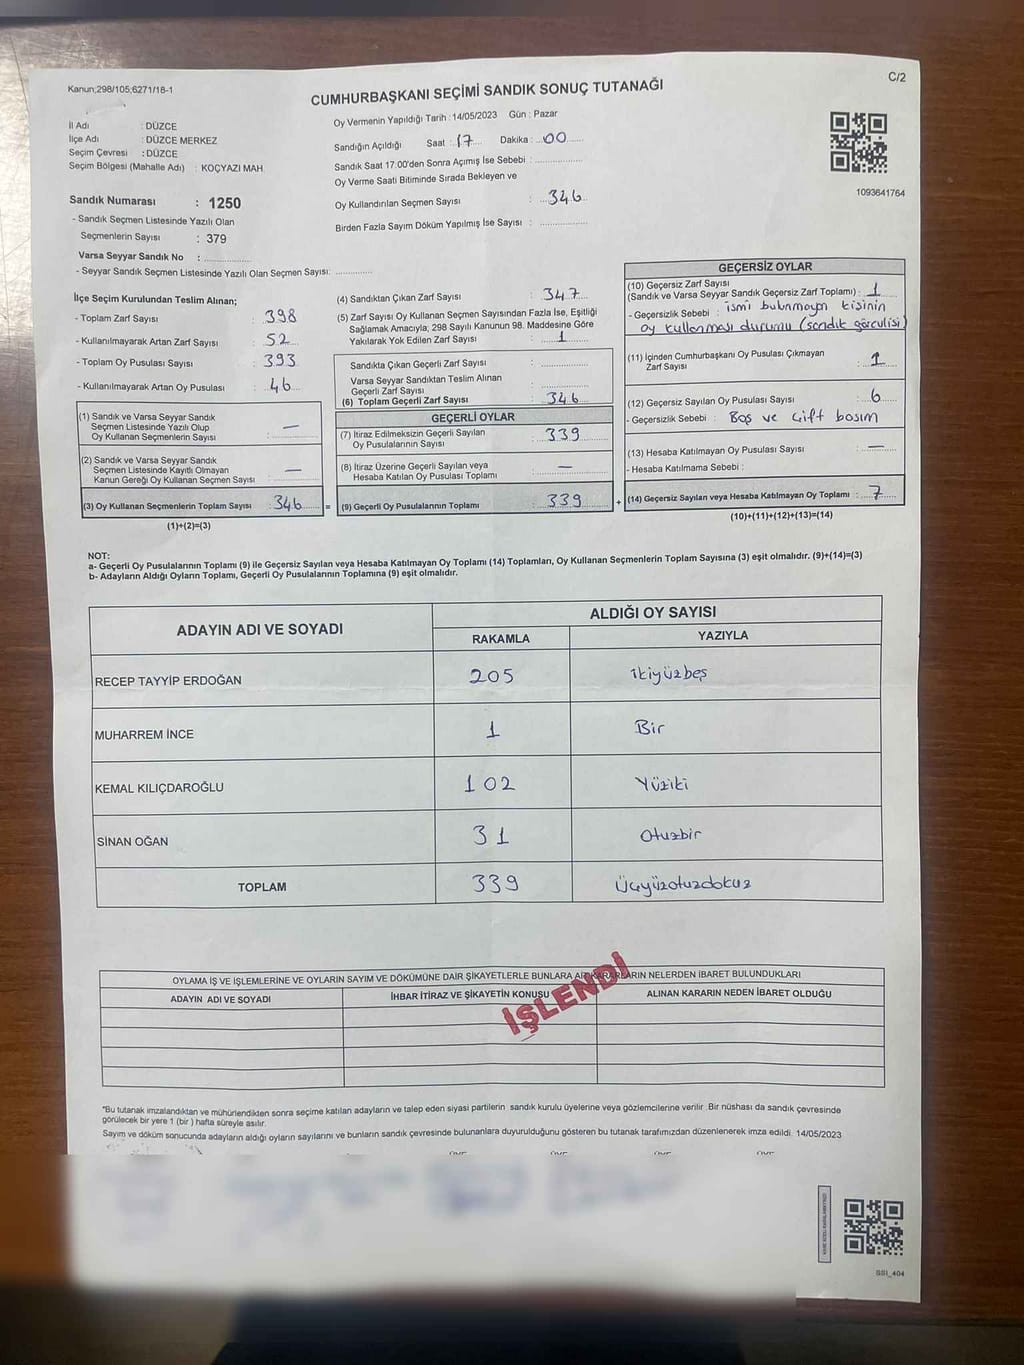 Kanun;298/105;6271/18-1
C/2
CUMHURBAŞKANI SEÇİMİ SANDIK SONUÇ TUTANAĞI
İl Adı : DÜZCE
İlçe Adı : DÜZCE MERKEZ
Seçim Çevresi : DÜZCE
Seçim Bölgesi (Mahalle Adı) : KOÇYAZI MAH
Oy Vermenin Yapıldığı Tarih : 14/05/2023 Gün : Pazar
Sandığın Açıldığı Saat : 17 Dakika : 00
Sandık Saat 17:00'den Sonra Açımış İse Sebebi :
Oy Verme Saati Bitiminde Sırada Bekleyen ve
Oy Kullandırılan Seçmen Sayısı : 346
Birden Fazla Sayım Döküm Yapılmış İse Sayısı :
1093641764
Sandık Numarası : 1250
- Sandık Seçmen Listesinde Yazılı Olan
Seçmenlerin Sayısı : 379
Varsa Seyyar Sandık No :
- Seyyar Sandık Seçmen Listesinde Yazılı Olan Seçmen Sayısı:
İlçe Seçim Kurulundan Teslim Alınan;
- Toplam Zarf Sayısı : 398
- Kullanılmayarak Artan Zarf Sayısı : 52
- Toplam Oy Pusulası Sayısı : 393
- Kullanılmayarak Artan Oy Pusulası : 46
(1) Sandık ve Varsa Seyyar Sandık
Seçmen Listesinde Yazılı Olup
Oy Kullanan Seçmenlerin Sayısı : —
(2) Sandık ve Varsa Seyyar Sandık
Seçmen Listesinde Kayıtlı Olmayan
Kanun Gereği Oy Kullanan Seçmen Sayısı : —
(3) Oy Kullanan Seçmenlerin Toplam Sayısı : 346 =
(1)+(2)=(3)
(4) Sandıktan Çıkan Zarf Sayısı : 347
(5) Zarf Sayısı Oy Kullanan Seçmen Sayısından Fazla İse, Eşitliği
Sağlamak Amacıyla; 298 Sayılı Kanunun 98. Maddesine Göre
Yakılarak Yok Edilen Zarf Sayısı : 1
Sandıkta Çıkan Geçerli Zarf Sayısı :
Varsa Seyyar Sandıktan Teslim Alınan
Geçerli Zarf Sayısı :
(6) Toplam Geçerli Zarf Sayısı : 346
GEÇERLİ OYLAR
(7) İtiraz Edilmeksizin Geçerli Sayılan
Oy Pusulalarının Sayısı : 339
(8) İtiraz Üzerine Geçerli Sayılan veya
Hesaba Katılan Oy Pusulası Toplamı : —
(9) Geçerli Oy Pusulalarının Toplamı : 339 +
GEÇERSİZ OYLAR
(10) Geçersiz Zarf Sayısı
(Sandık ve Varsa Seyyar Sandık Geçersiz Zarf Toplamı) : 1
- Geçersizlik Sebebi : ismi bulunmayn kisinin
oy kullanması durumu (sandık görculisi)
(11) İçinden Cumhurbaşkanı Oy Pusulası Çıkmayan
Zarf Sayısı : 1
(12) Geçersiz Sayılan Oy Pusulası Sayısı : 6
- Geçersizlik Sebebi : Boş ve Çift basım
(13) Hesaba Katılmayan Oy Pusulası Sayısı : —
- Hesaba Katılmama Sebebi :
(14) Geçersiz Sayılan veya Hesaba Katılmayan Oy Toplamı : 7
(10)+(11)+(12)+(13)=(14)
NOT:
a- Geçerli Oy Pusulalarının Toplamı (9) ile Geçersiz Sayılan veya Hesaba Katılmayan Oy Toplamı (14) Toplamları, Oy Kullanan Seçmenlerin Toplam Sayısına (3) eşit olmalıdır. (9)+(14)=(3)
b- Adayların Aldığı Oyların Toplamı, Geçerli Oy Pusulalarının Toplamına (9) eşit olmalıdır.
ADAYIN ADI VE SOYADI
ALDIĞI OY SAYISI
RAKAMLA YAZIYLA
RECEP TAYYİP ERDOĞAN 205 ikiyüzbeş
MUHARREM İNCE 1 Bir
KEMAL KILIÇDAROĞLU 102 Yüziki
SİNAN OĞAN 31 Otuzbir
TOPLAM 339 Üçyüzotuzdokuz
OYLAMA İŞ VE İŞLEMLERİNE VE OYLARIN SAYIM VE DÖKÜMÜNE DAİR ŞİKAYETLERLE BUNLARA AİT KARARLARIN NELERDEN İBARET BULUNDUKLARI
ADAYIN ADI VE SOYADI İHBAR İTİRAZ VE ŞİKAYETİN KONUSU ALINAN KARARIN NEDEN İBARET OLDUĞU
İŞLENDİ
*Bu tutanak imzalandıktan ve mühürlendikten sonra seçime katılan adayların ve talep eden siyasi partilerin sandık kurulu üyelerine veya gözlemcilerine verilir. Bir nüshası da sandık çevresinde
görülecek bir yere 1 (bir ) hafta süreyle asılır.
Sayım ve döküm sonucunda adayların aldığı oyların sayılarını ve bunların sandık çevresinde bulunanlara duyurulduğunu gösteren bu tutanak tarafımızdan düzenlenerek imza edildi. 14/05/2023
SSI_404